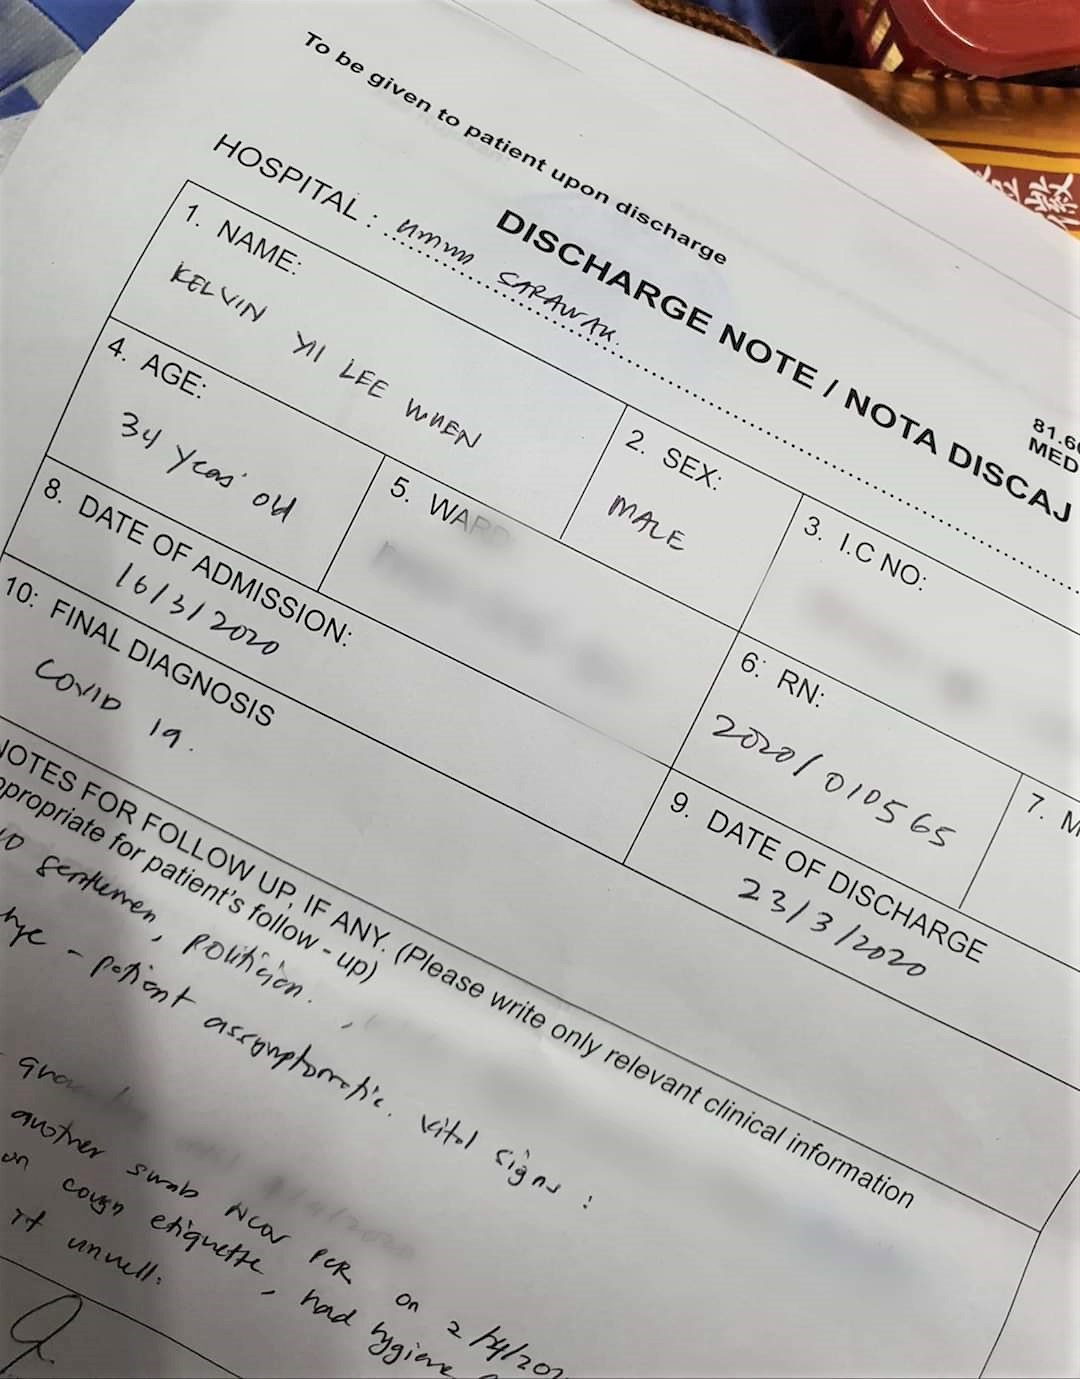 To be given to patient upon discharge
DISCHARGE NOTE / NOTA DISCAJ
HOSPITAL : Umum SARAWAK
81.6
MED
1. NAME:
KELVIN YII LEE WUEN
2. SEX:
MALE
3. I.C NO:
4. AGE:
34 years' old
5. WARD
6: RN:
2020/010565
7. M
8. DATE OF ADMISSION:
16/3/2020
9. DATE OF DISCHARGE
23/3/2020
10: FINAL DIAGNOSIS
COVID 19.
NOTES FOR FOLLOW UP, IF ANY. (Please write only relevant clinical information
ppropriate for patient's follow - up)
gentlemen, politician.
- patient assymptomatic. vital signs :
another swab nCov PCR on 2/4/202
on cough etiquette, hand hygiene
if unwell.